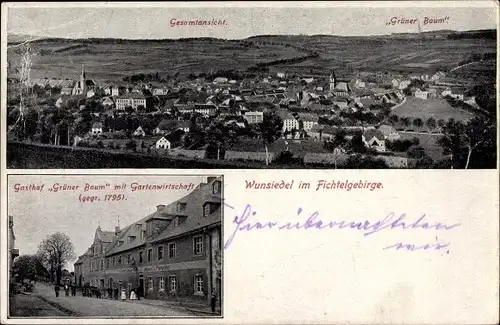 Gesamtansicht.
„Grüner Baum“
Gasthof „Grüner Baum“ mit Gartenwirtschaft
(gegr. 1795).
Wunsiedel im Fichtelgebirge.
Hier übernachten
wir.